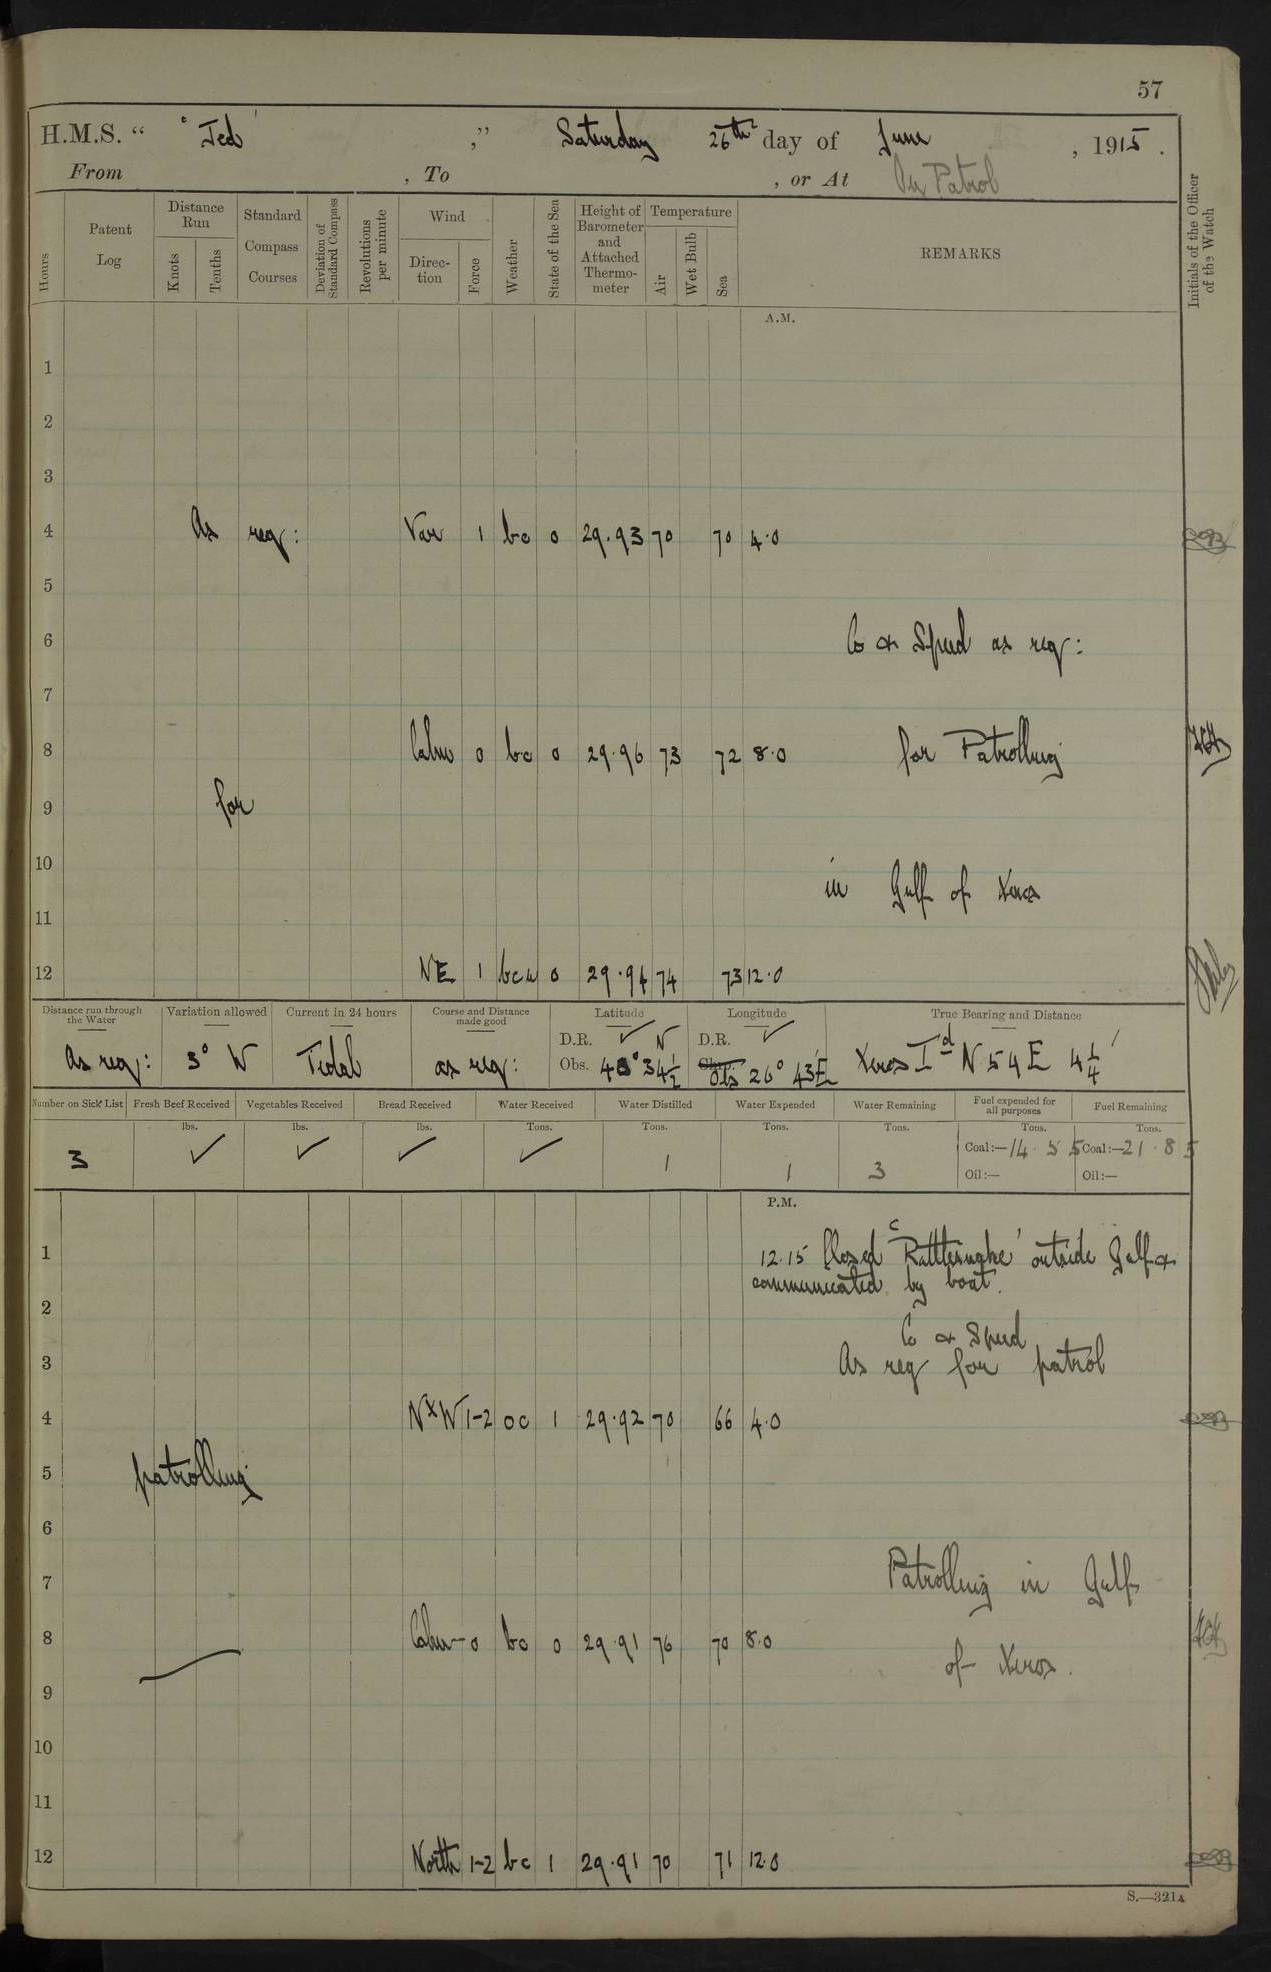 57
H.M.S. “ 'Jed' ,” Saturday 26th day of June, 1915.
From , To , or At On Patrol
Hours
Patent Log
Distance Run
Knots
Tenths
Standard Compass Courses
Deviation of Standard Compass
Revolutions per minute
Wind
Direction
Force
Weather
State of the Sea
Height of Barometer and Attached Thermometer
Temperature
Air
Wet Bulb
Sea
REMARKS
Initials of the Officer of the Watch
A.M.
1
2
3
4 As req: Var 1 bc 0 29.93 70 70 4.0
5
6 Co & Speed as req:
7
8 Calm 0 bc 0 29.96 73 72 8.0 for Patrolling
9 for
10 in Gulf of Xeros
11
12 NE 1 bcu 0 29.94 74 73 12.0
Distance run through the Water
Variation allowed
Current in 24 hours
Course and Distance made good
Latitude
Longitude
True Bearing and Distance
D.R. ✓ N D.R. ✓
As req: 3° W Tidal as req: Obs. 40° 34½ Obs 26° 43'E Xeros Id N 54 E 4¼'
Number on Sick List
Fresh Beef Received
Vegetables Received
Bread Received
Water Received
Water Distilled
Water Expended
Water Remaining
Fuel expended for all purposes
Fuel Remaining
lbs. lbs. lbs. Tons. Tons. Tons. Tons. Tons. Tons.
3 ✓ ✓ ✓ ✓ 1 1 3 Coal:—14.55 Coal:—21.85
Oil:— Oil:—
P.M.
1 12.15 Closed 'Rattlesnake' outside Gulf &
communicated by boat.
2
Co & Speed
3 As req for patrol
4 NxW 1-2 oc 1 29.92 70 66 4.0
5 patrolling
6
7 Patrolling in Gulf
8 Calm 0 bc 0 29.91 76 70 8.0
of Xeros.
9
10
11
12 North 1-2 bc 1 29.91 70 71 12.0
S.—321A